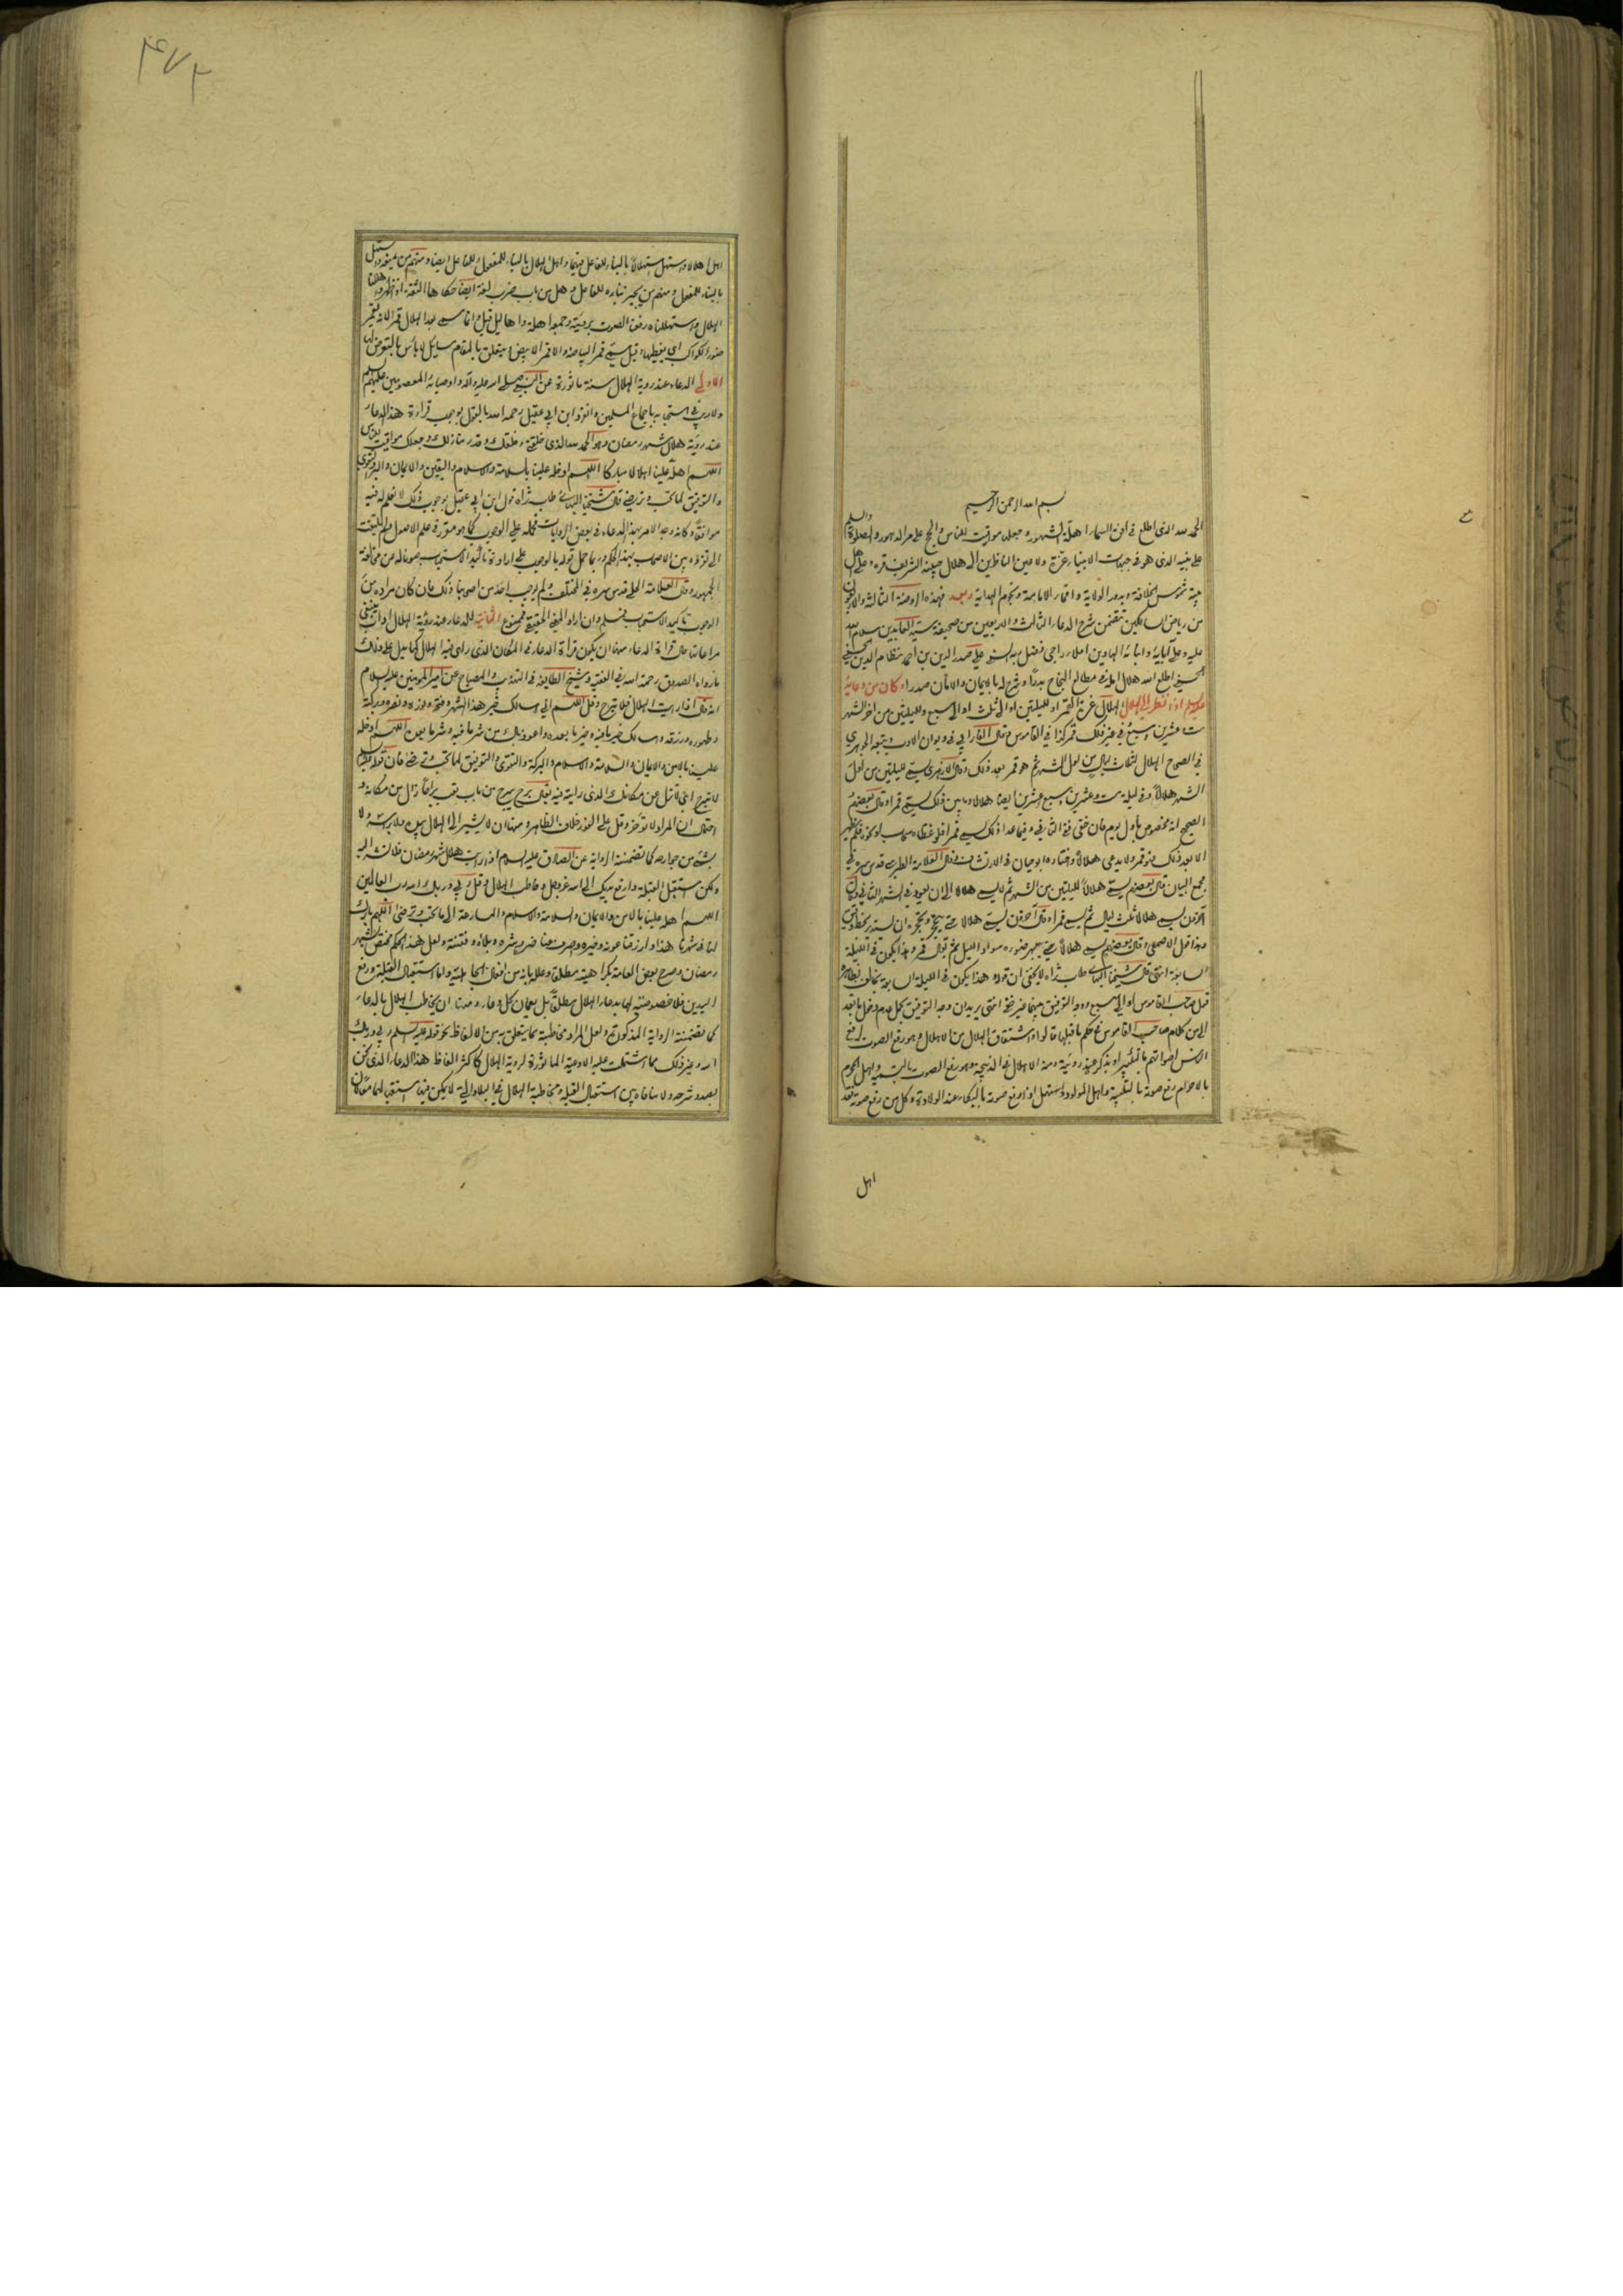 بسم الله الرحمن الرحيم
الحمد لله الذى اطلع فى افق السماء اهلة الشهور وجعلها مواقيت للناس والحج على مر الدهور والصلوة والسلم
على نبيه الذى هو فى جبهات الانبياء غرة ولاعين الناظرين الى هلال جبينه الشريف قرة وعلى اهل
بيته شموس الخلافة وبدور الولاية واقمار الامامة ونجوم الهداية وبعد فهذه الروضة الثالثة والاربعون
من رياض السالكين تتضمن شرح الدعاء الثالث والاربعين من صحيفة سيد العابدين سلام الله
عليه وعلى آبائه وابنائه الهادين املاء راجى فضل ربه السنى على صدر الدين بن احمد نظام الدين الحسينى
الحسنى اطلع الله هلال امله فى مطالع النجاح بدرا وشرح له بالايمان والامان صدرا وكان من دعائه
عليه السلم اذا نظر الى الهلال الهلال غرة القمر او لليلتين او الى ثلث او الى سبع ولليلتين من اخر الشهر
ست وعشرين وسبع وفى غير ذلك قمر كذا فى القاموس وقال الفارابى فى ديوان الادب وتبعه الجوهرى
فى الصحاح الهلال لثلاث ليال من اول الشهر ثم هو قمر بعد ذلك وقال الازهرى يسمى لليلتين من اول
الشهر هلالا وفى ليلة ست وعشرين وسبع وعشرين ايضا هلالا وما بين ذلك يسمى قمرا وقال بعضهم
الصحيح انه مخصوص باول يوم فان خفى ففى الثانى وفيما عدا ذلك يسمى قمرا فلو غطاه سحاب او نحوه فلم يظهر
الا بعد ذلك فهو قمر ولا يدعى هلالا واختاره ابوحيان فى الارتشاف وقال العلامة الطبرسى قدس سره فى
مجمع البيان قال بعضهم يسمى هلالا لليلتين من الشهر ثم لا يسمى هلالا الى ان يعود فى الشهر الثانى وقال
آخرون يسمى هلالا ثلث ليال ثم يسمى قمرا وقال آخرون يسمى هلالا حتى يحجر وتحجيره ان يستدير بخطة دقيقة
وهذا قول الاصمعى وقال بعضهم يسمى هلالا حتى يبهر ضوءه سواد الليل ثم يقال قمر وهذا يكون فى الليلة
السابعة انتهى قال شيخنا البهائى طاب ثراه لا يخفى ان قوله وهذا يكون فى الليلة السابعة يخالف بظاهره
قول صاحب القاموس او الى سبع ووجه التوفيق بينهما غير خفى انتهى يريد ان وجه التوفيق بحمل عدم دخول ما بعد
الى من كلام صاحب القاموس فى حكم ما قبلها قالوا واشتقاق الهلال من الاهلال وهو رفع الصوت لرفع
الناس اصواتهم بالتكبير او بذكر عند رؤيته ومنه الاهلال على الذبيحة وهو رفع الصوت بالتسمية واهل المحرم
بالاحرام رفع صوته بالتلبية واهل المولود واستهل اذا رفع صوته بالبكاء عند الولادة وكل من رفع صوته فقد
اهل
اهل اهلالا واستهل استهلالا بالبناء للفاعل فيهما واهل الهلال بالبناء للمفعول وللفاعل ايضا ومنهم من يمنعه واستهل
بالبناء للمفعول ومنهم من يجيز بناءه للفاعل وهل من باب ضرب لغة ايضا حكاها الثقة اذا ظهر واهللنا
الهلال واستهللناه رفعنا الصوت برؤيته وجمعه اهلة واهاليل قيل وانما سمى بعد الهلال قمرا لانه يقمر
ضوء الكواكب اى يغطيها وقيل سمى قمرا لبياضه والاقمر الابيض يتعلق بالمقام مسايل لا باس بالتعرض لها
الاولى الدعاء عند روية الهلال سنة ماثورة عن النبى صلى الله عليه وآله واوصيائه المعصومين عليهم السلم
ولا ريب فى استحبابه باجماع المسلمين وانفرد ابن ابى عقيل رحمه الله بالقول بوجوب قراءة هذا الدعاء
عند روية هلال شهر رمضان وهو الحمد لله الذى خلقنى وخلقك وقدر منازلك وجعلك مواقيت للناس
اللهم اهله علينا اهلالا مباركا اللهم ادخله علينا بالسلامة والاسلام واليقين والايمان والبر والتقوى
والتوفيق لما تحب وترضى قال شيخنا البهائى طاب ثراه قول ابن ابى عقيل بوجوب ذلك لا نعلم له فيه
موافقا وكانه وجد الامر بهذا الدعاء فى بعض الروايات فحمله على الوجوب كما هو مقرر فى علم الاصول ولم يلتفت
الى تفرده بين الاصحاب بهذا الحكم وربما حمل قوله بالوجوب على ارادة تأكيد الاستحباب صونا له عن مخالفة
الجمهور وقال العلامة الحلى قدس سره فى المختلف ولم يوجب احد من اصحابنا ذلك فان كان مراده من
الوجوب تاكيد الاستحباب فمسلم وان اراد المعنى الحقيقى فممنوع الثانية للدعاء عند رؤية الهلال اداب ينبغى
مراعاتها حال قراءة الدعاء منها ان يكون قراءة الدعاء فى المكان الذى راى فيه الهلال كما يدل على ذلك
ما رواه الصدوق رحمه الله فى الفقيه وشيخ الطايفة فى التهذيب والمصباح عن امير المؤمنين عليه السلام
انه قال اذا رايت الهلال فلا تبرح وقل اللهم انى اسالك خير هذا الشهر وفتحه ونوره ونصره وبركته
وطهوره ورزقه واسالك خير ما فيه وخير ما بعده واعوذ بك من شر ما فيه وشر ما بعده اللهم ادخله
علينا بالامن والايمان والسلامة والاسلام والبركة والتقوى والتوفيق لما تحب وترضى فان قوله عليه السلم
لا تبرح اى لا تزل عن مكانك الذى رايته فيه يقال برح يبرح من باب تعب براحا زال من مكانه و
احتمال ان المراد لا تؤخر وقل على الفور خلاف الظاهر ومنها ان لا يشير الى الهلال بيده ولا براسه ولا
بشئ من جوارحه كما تضمنته الرواية عن الصادق عليه السلام اذا رايت هلال شهر رمضان فلا تشر اليه
ولكن استقبل القبلة وارفع يديك الى الله عز وجل وخاطب الهلال وقل ربى وربك الله رب العالمين
اللهم اهله علينا بالامن والايمان والسلامة والاسلام والمسارعة الى ما تحب وترضى اللهم بارك
لنا فى شهرنا هذا وارزقنا عونه وخيره واصرف عنا ضره وشره وبلاءه وفتنته ولعل هذا الحكم مختص بشهر
رمضان وصرح بعض العامة بكراهيته مطلقا وعلله بانه من افعال الجاهلية واما استقبال القبلة ورفع
اليدين فلا خصوصية لهما بدعاء الهلال مطلقا بل يعمان كل دعاء ومنها ان يخاطب الهلال بالدعاء
كما تضمنته الرواية المذكورة ولعل المراد مخاطبته بما يتعلق به من الالفاظ نحو قوله عليه السلم ربى وربك
الله وغير ذلك مما اشتملت عليه الادعية الماثورة لروية الهلال كاكثر الفاظ هذا الدعاء الذى نحن
بصدد شرحه ولا منافاة بين استقبال القبلة ومخاطبة الهلال فى البلاد التى لا يمكن فيها استقبالهما معا لان